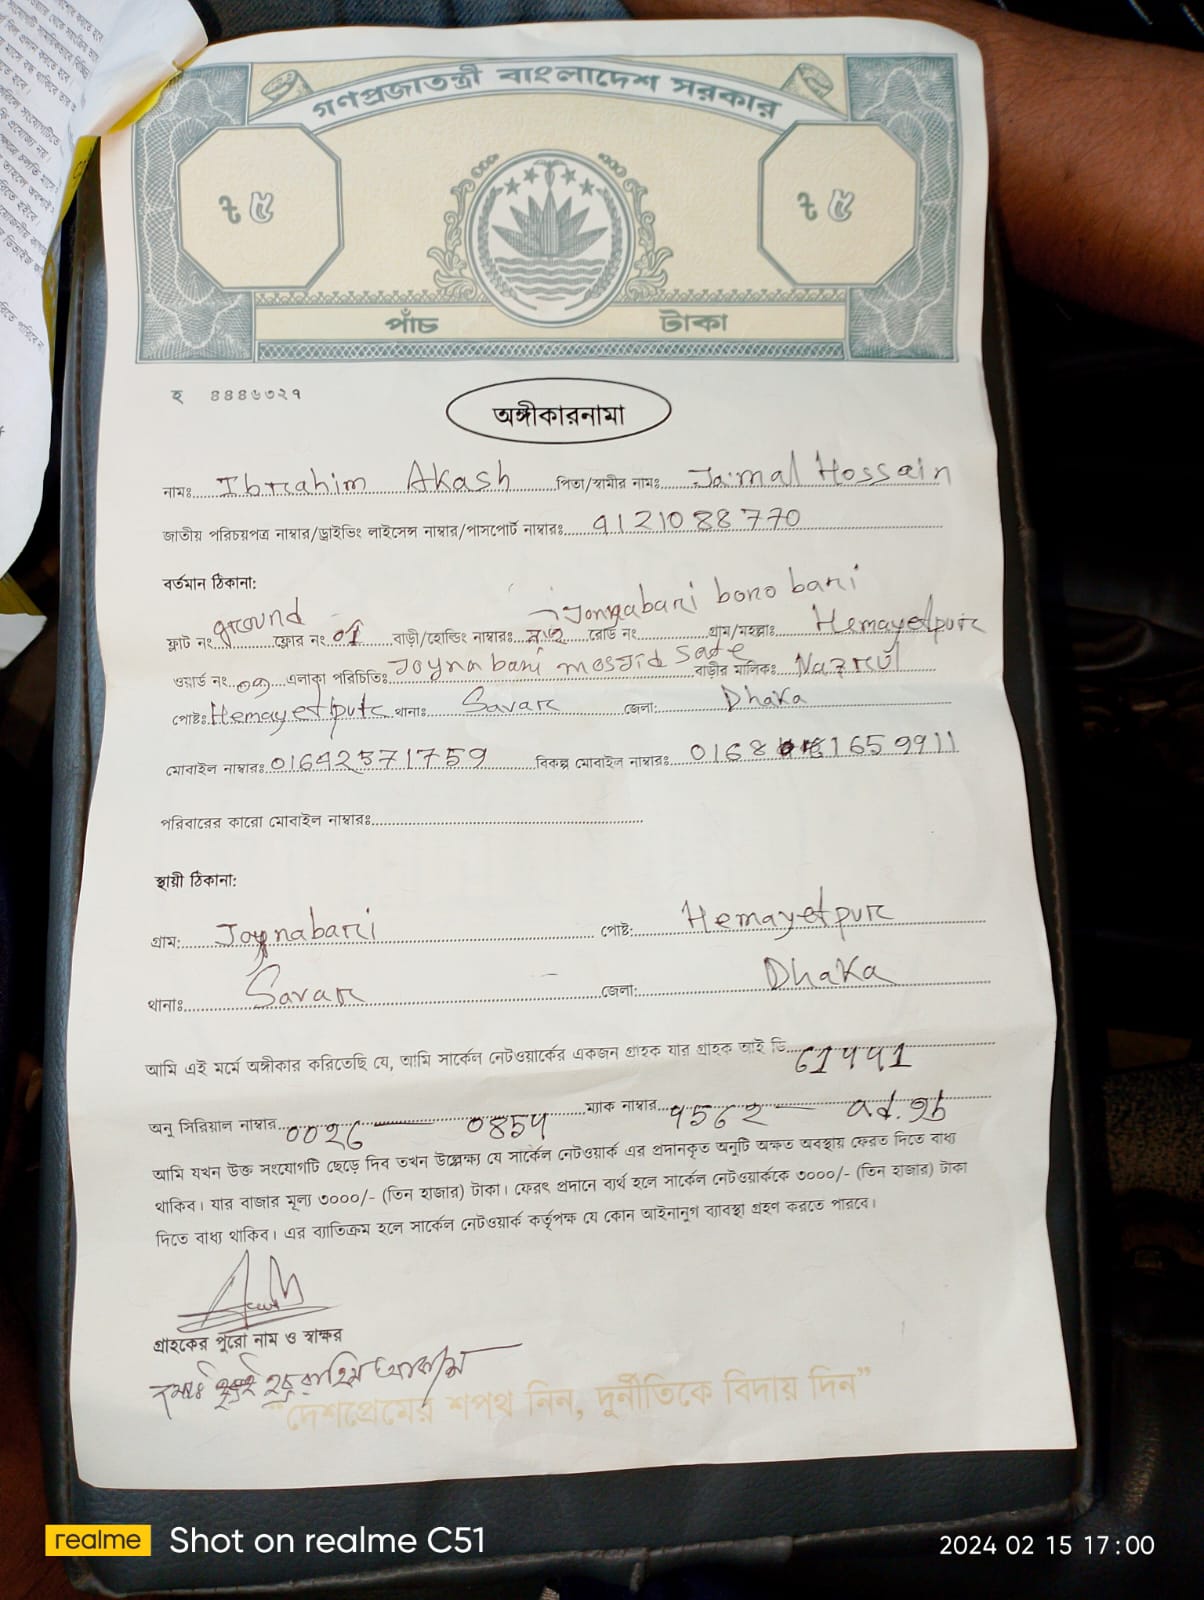 গণপ্রজাতন্ত্রী বাংলাদেশ সরকার
৳ ৫ ৳ ৫
পাঁচ টাকা
হ ৪৪৪৬৩২৭
অঙ্গীকারনামা
নামঃ Ibrahim Akash পিতা/স্বামীর নামঃ Jamal Hossain
জাতীয় পরিচয়পত্র নাম্বার/ড্রাইভিং লাইসেন্স নাম্বার/পাসপোর্ট নাম্বারঃ 9121088770
বর্তমান ঠিকানা:
ফ্লাট নং ground ফ্লোর নং 01 বাড়ী/হোল্ডিং নাম্বারঃ নাই রোড নং গ্রাম/মহল্লাঃ bono bari Hemayetpur
ওয়ার্ড নং ০৩ এলাকা পরিচিতিঃ Joynabari mosjid sade বাড়ীর মালিকঃ Nazrul
পোষ্টঃ Hemayetpur থানাঃ Savar জেলা: Dhaka
মোবাইল নাম্বারঃ 01642571759 বিকল্প মোবাইল নাম্বারঃ 0168 1659911
পরিবারের কারো মোবাইল নাম্বারঃ
স্থায়ী ঠিকানা:
গ্রাম: Joynabari পোষ্ট: Hemayetpur
থানাঃ Savar জেলা: Dhaka
আমি এই মর্মে অঙ্গীকার করিতেছি যে, আমি সার্কেল নেটওয়ার্কের একজন গ্রাহক যার গ্রাহক আই ডি
অনু সিরিয়াল নাম্বার ম্যাক নাম্বার
আমি যখন উক্ত সংযোগটি ছেড়ে দিব তখন উল্লেক্ষ্য যে সার্কেল নেটওয়ার্ক এর প্রদানকৃত অনুটি অক্ষত অবস্থায় ফেরত দিতে বাধ্য
থাকিব। যার বাজার মূল্য ৩০০০/- (তিন হাজার) টাকা। ফেরৎ প্রদানে ব্যর্থ হলে সার্কেল নেটওয়ার্ককে ৩০০০/- (তিন হাজার) টাকা
দিতে বাধ্য থাকিব। এর ব্যাতিক্রম হলে সার্কেল নেটওয়ার্ক কর্তৃপক্ষ যে কোন আইনানুগ ব্যাবস্থা গ্রহণ করতে পারবে।
গ্রাহকের পুরো নাম ও স্বাক্ষর
নামঃ আকাশ
“দেশপ্রেমের শপথ নিন, দুর্নীতিকে বিদায় দিন”
realme Shot on realme C51
2024 02 15 17:00